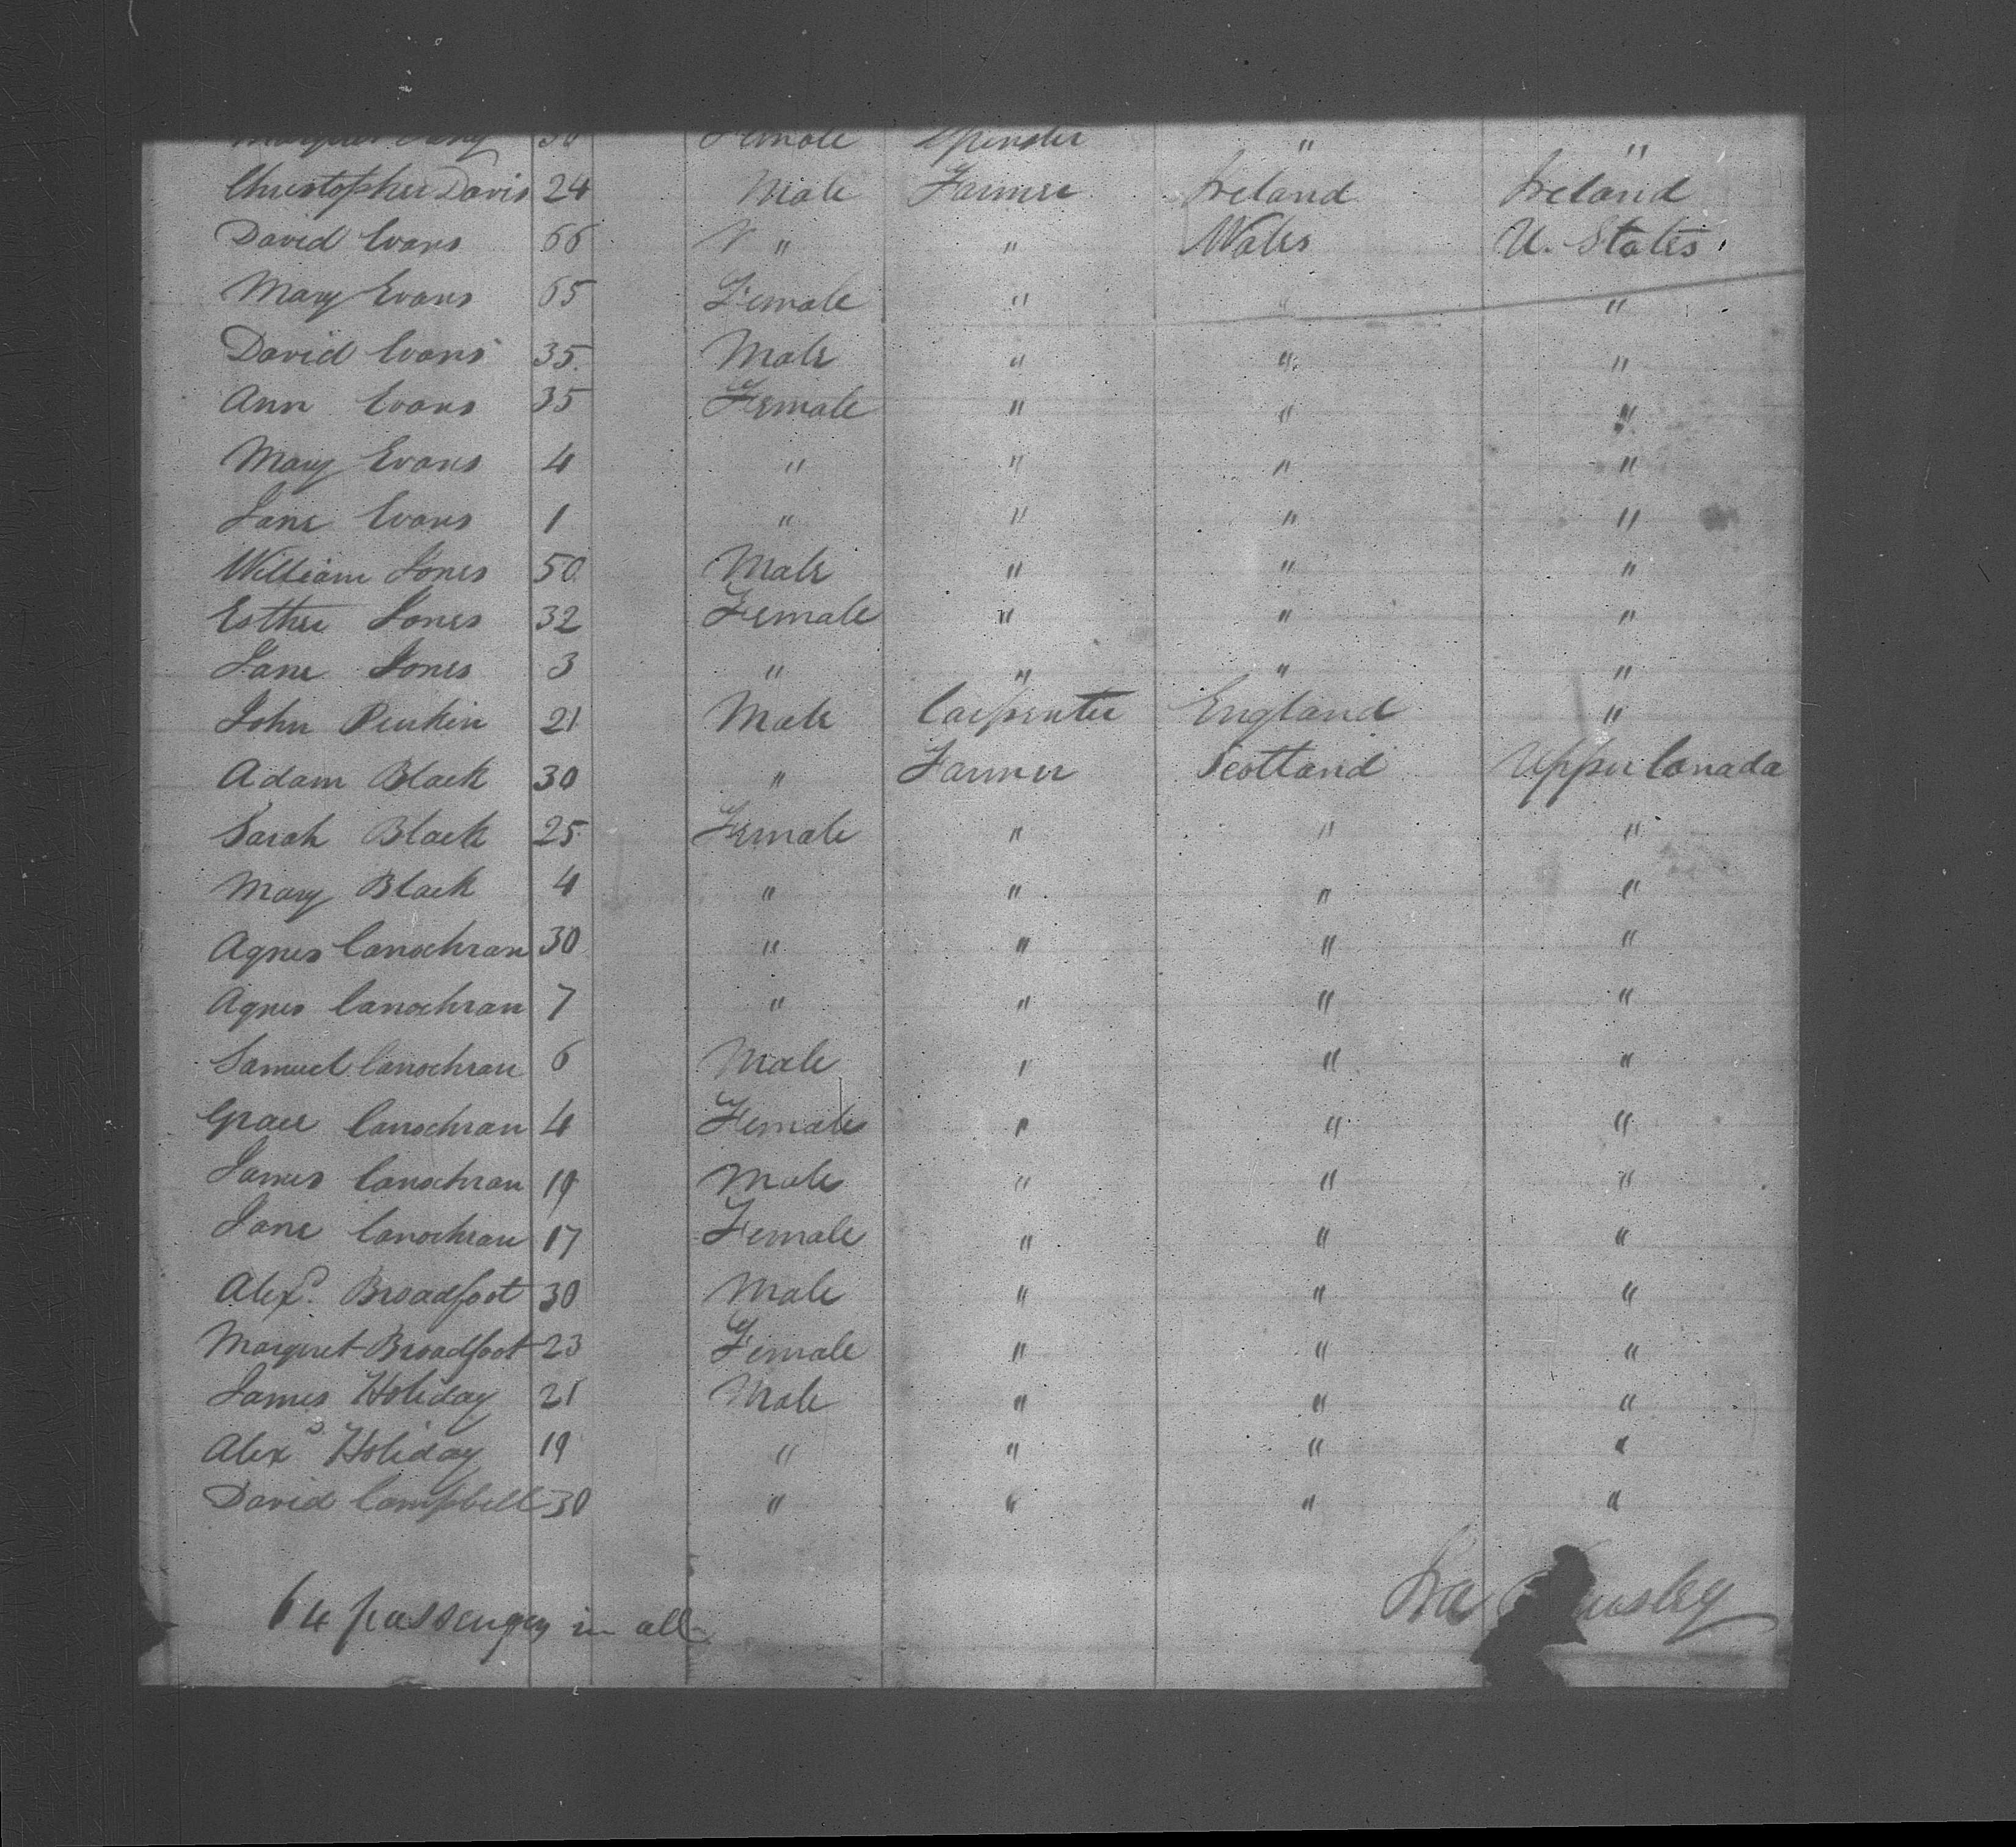 30 Female Spinster " "
Christopher Davis 24 Male Farmer Ireland Ireland
David Evans 66 " " Wales U. States
Mary Evans 65 Female " " "
David Evans 35 Male " " "
Ann Evans 35 Female " " "
Mary Evans 4 " " " "
Jane Evans 1 " " " "
William Jones 50 Male " " "
Esther Jones 32 Female " " "
Jane Jones 3 " " " "
John 21 Male Carpenter England "
Adam Black 30 " Farmer Scotland Upper Canada
Sarah Black 25 Female " " "
Mary Black 4 " " " "
Agnes Canochran 30 " " " "
Agnes Canochran 7 " " " "
Samuel Canochran 6 Male " " "
Grace Canochran 4 Female " " "
James Canochran 19 Male " " "
Jane Canochran 17 Female " " "
Alexr. Broadfoot 30 Male " " "
Margret Broadfoot 23 Female " " "
James Holiday 21 Male " " "
Alexr Holiday 19 " " " "
David Campbell 30 " " " "
64 passengers in all
Ira